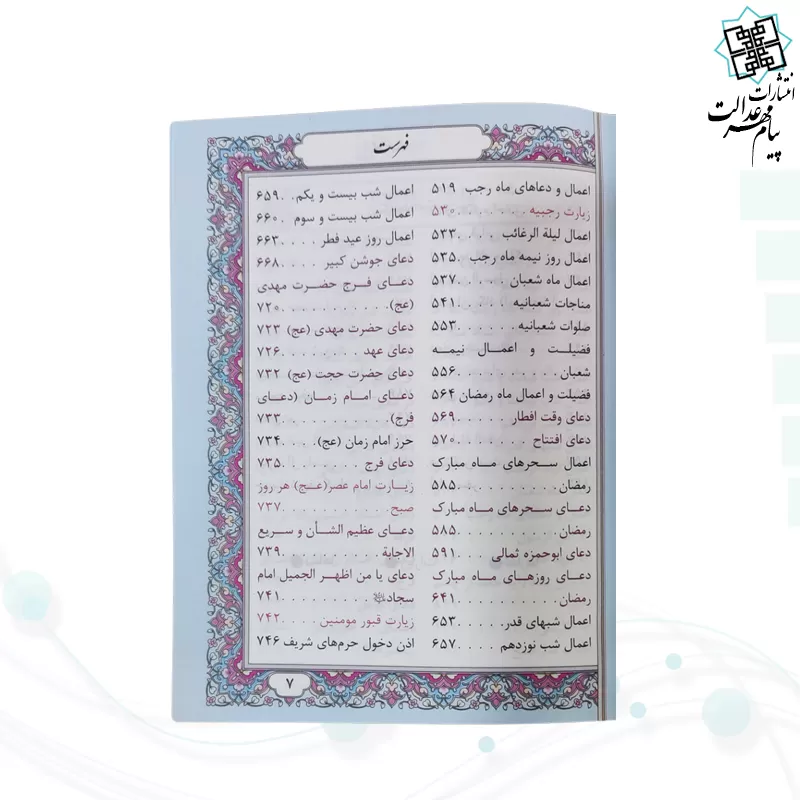 انتشارات
پیام مهر عدالت
فهرست
اعمال و دعاهای ماه رجب ۵۱۹
زیارت رجبیه . . . . . . . ۵۳۰
اعمال لیلة الرغائب . . . . ۵۳۳
اعمال روز نیمه ماه رجب . ۵۳۵
اعمال ماه شعبان . . . . . ۵۳۷
مناجات شعبانیه . . . . . ۵۴۱
صلوات شعبانیه . . . . . . ۵۵۳
فضیلت و اعمال نیمه
شعبان . . . . . . . . . . ۵۵۶
فضیلت و اعمال ماه رمضان ۵۶۴
دعای وقت افطار . . . . . . ۵۶۹
دعای افتتاح . . . . . . . ۵۷۰
اعمال سحرهای ماه مبارک
رمضان . . . . . . . . . . ۵۸۵
دعای سحرهای ماه مبارک
رمضان . . . . . . . . . . ۵۸۵
دعای ابوحمزه ثمالی . . . . ۵۹۱
دعای روزهای ماه مبارک
رمضان . . . . . . . . . . ۶۴۱
اعمال شبهای قدر . . . . . ۶۵۳
اعمال شب نوزدهم . . . . ۶۵۷
اعمال شب بیست و یکم . . ۶۵۹
اعمال شب بیست و سوم . . ۶۶۰
اعمال روز عید فطر . . . . ۶۶۳
دعای جوشن کبیر . . . . . ۶۶۸
دعای فرج حضرت مهدی
(عج) . . . . . . . . . . . ۷۲۰
دعای حضرت مهدی (عج) ۷۲۳
دعای عهد . . . . . . . . ۷۲۶
دعای حضرت حجت (عج) ۷۳۲
دعای امام زمان (دعای
فرج) . . . . . . . . . . . ۷۳۳
حرز امام زمان (عج) . . . . ۷۳۴
دعای فرج . . . . . . . . ۷۳۵
زیارت امام عصر(عج) هر روز
صبح . . . . . . . . . . . ۷۳۷
دعای عظیم الشأن و سریع
الاجابة . . . . . . . . . . ۷۳۹
دعای یا من اظهر الجمیل امام
سجاد . . . . . . . . . . ۷۴۱
زیارت قبور مومنین . . . . . ۷۴۲
اذن دخول حرم‌های شریف ۷۴۶
۷